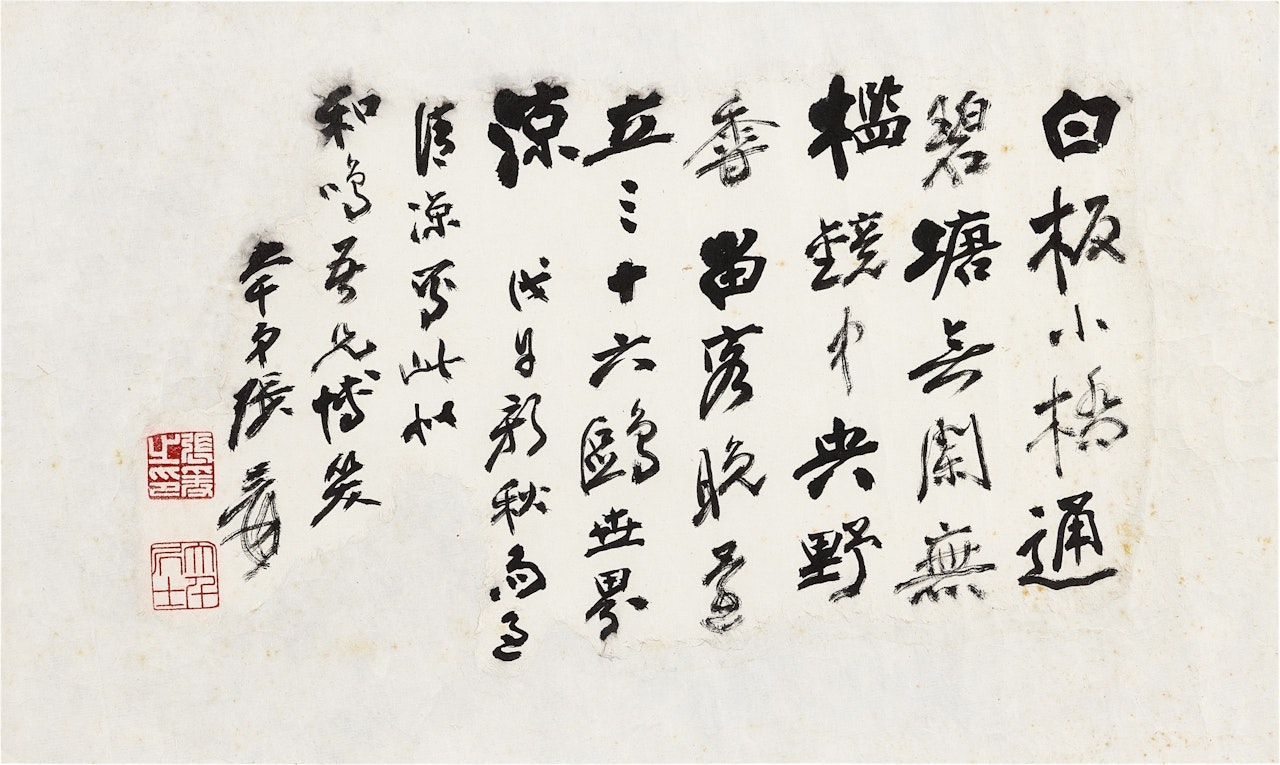 白板小橋通
碧塘无闌無
檻鏡中央野
香留客晚還
立三十六鷗世界
涼 戊申新秋雨過
清涼寫此似
和鳴吾兄博笑
大千弟張爰
張爰之印
大千居士